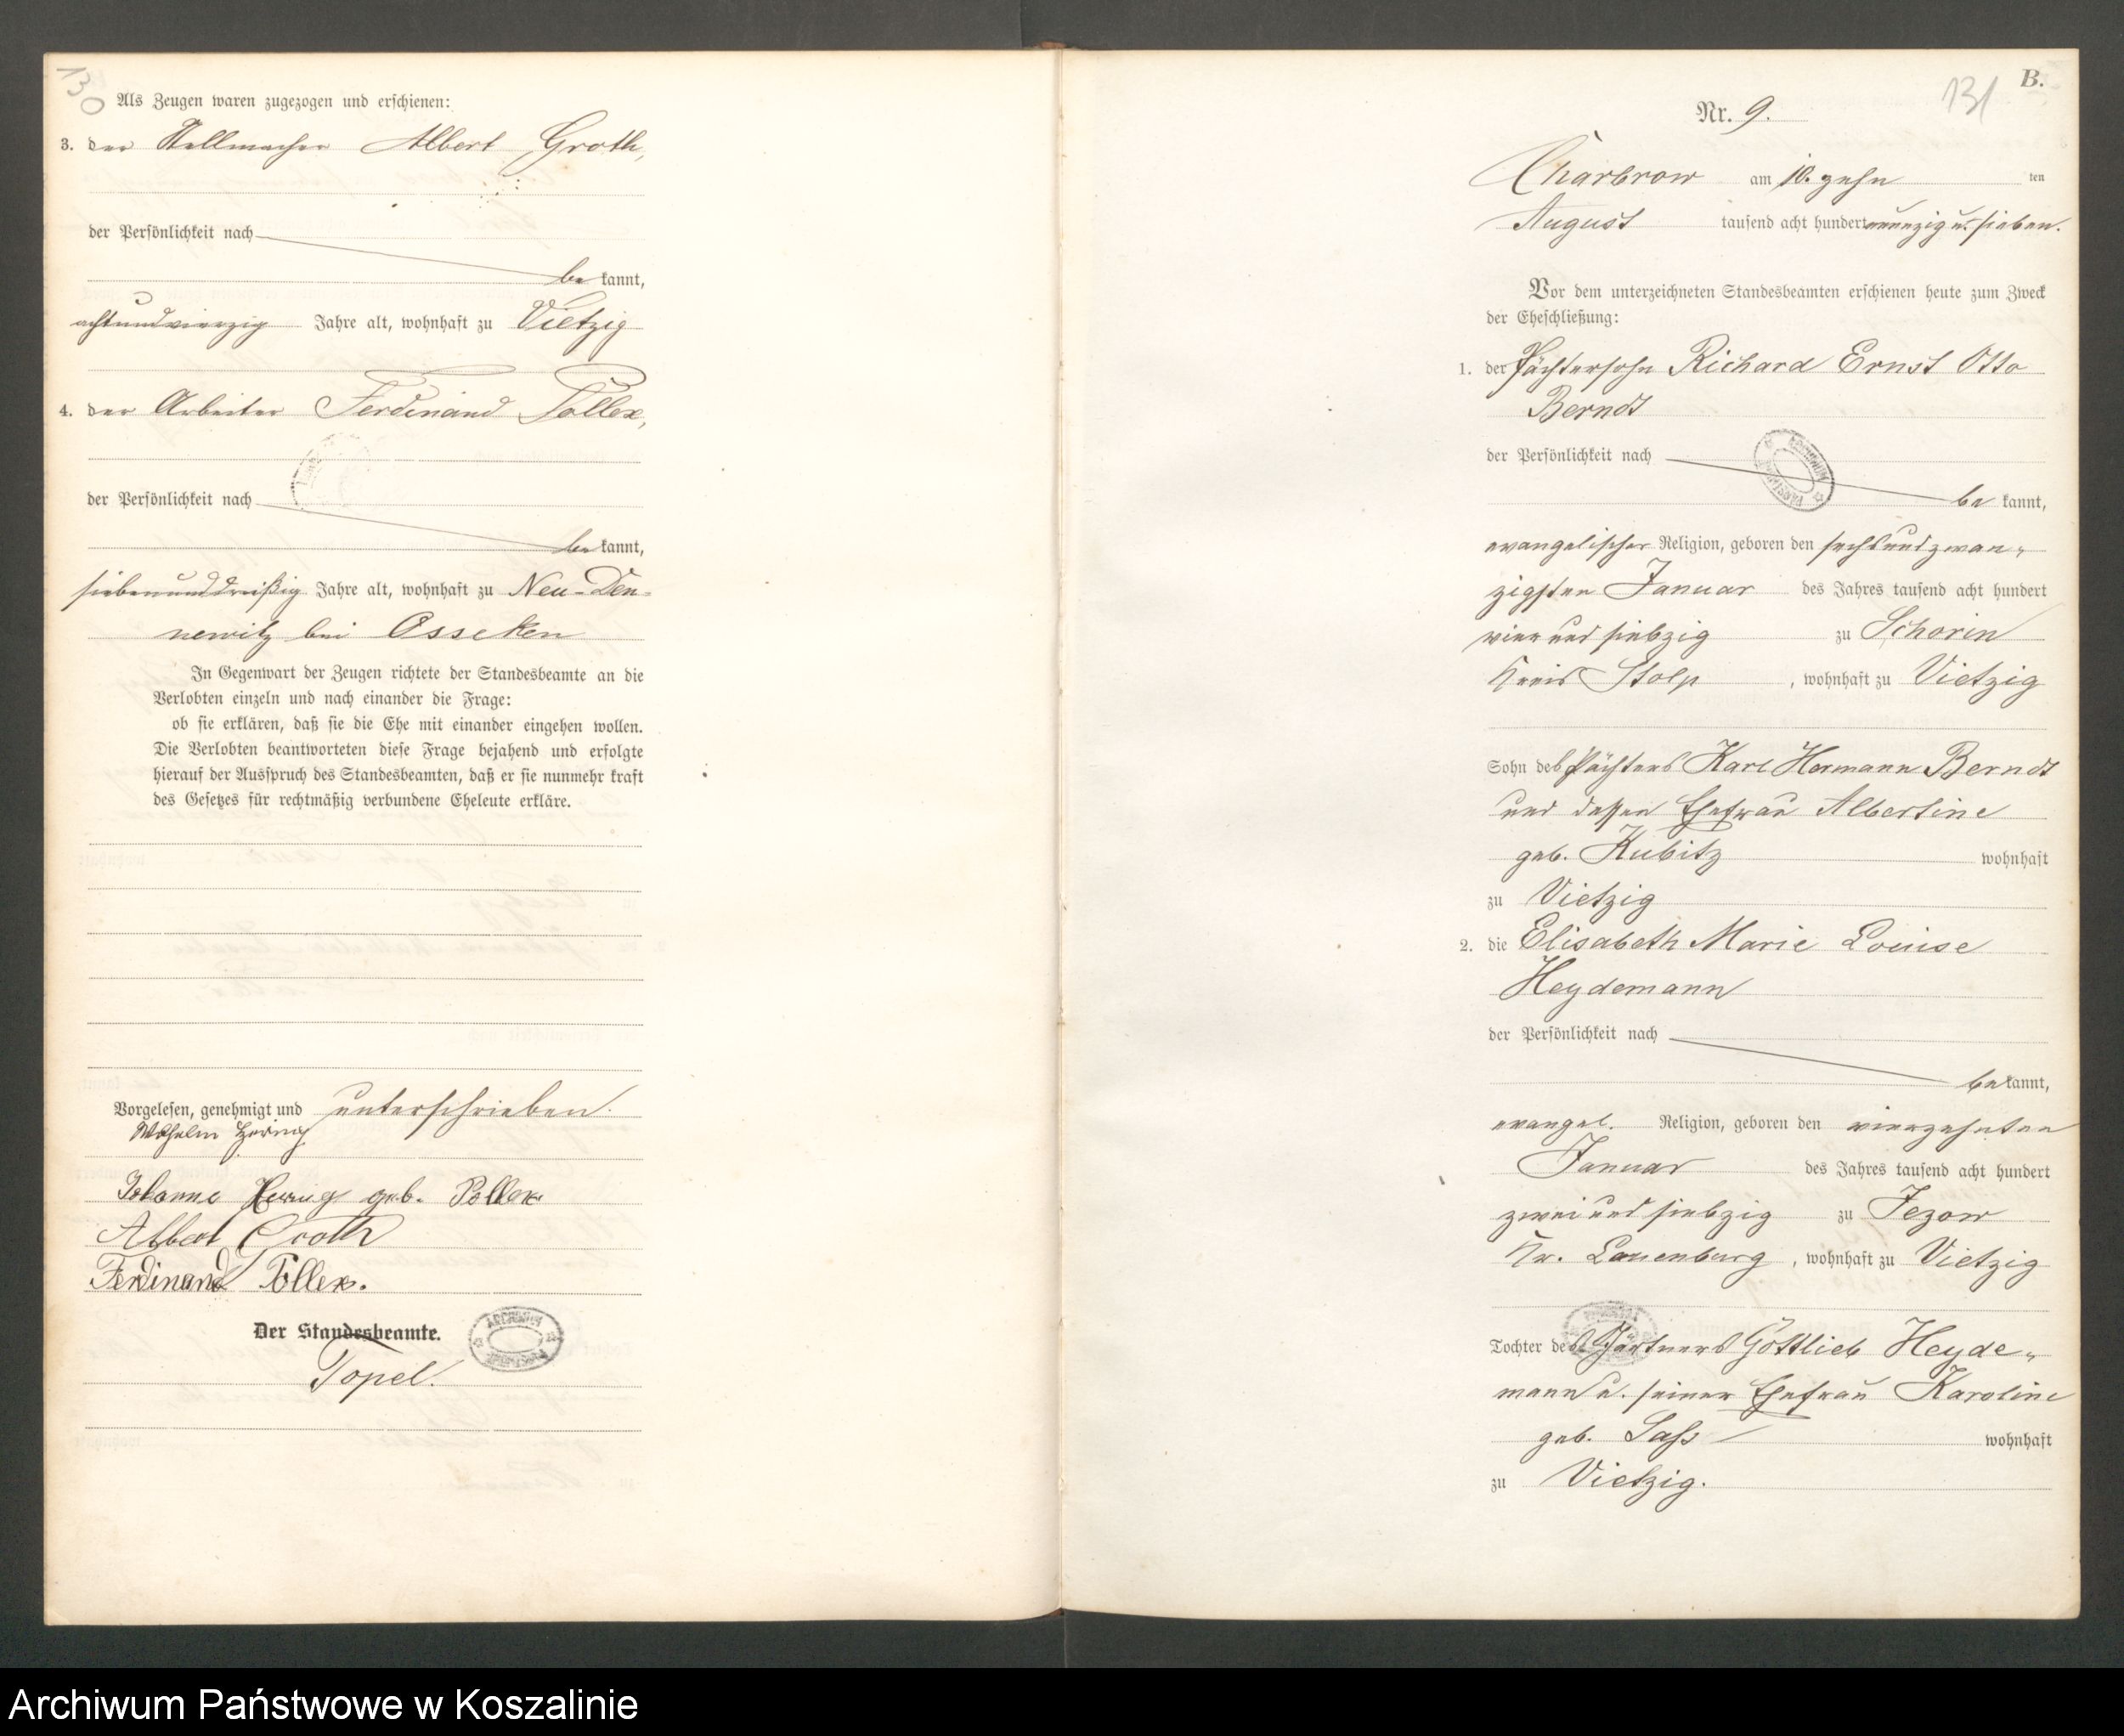 130
Als Zeugen waren zugezogen und erschienen:
3. der Stellmacher Albert Groth,
der Persönlichkeit nach
be kannt,
achtundvierzig Jahre alt, wohnhaft zu Vietzig
4. der Arbeiter Ferdinand Pollex,
der Persönlichkeit nach
be kannt,
siebenunddreißig Jahre alt, wohnhaft zu Neu-Den-
newitz bei Osseken
In Gegenwart der Zeugen richtete der Standesbeamte an die
Verlobten einzeln und nach einander die Frage:
ob sie erklären, daß sie die Ehe mit einander eingehen wollen.
Die Verlobten beantworteten diese Frage bejahend und erfolgte
hierauf der Ausspruch des Standesbeamten, daß er sie nunmehr kraft
des Gesetzes für rechtmäßig verbundene Eheleute erkläre.
Vorgelesen, genehmigt und unterschrieben.
Wilhelm Hering
Johanne Hering geb. Pollex
Albert Groth
Ferdinand Pollex.
Der Standesbeamte.
Topel.
B.
131
Nr. 9.
Charbrow am 10. zehn ten
August tausend acht hundert neunzig u. sieben.
Vor dem unterzeichneten Standesbeamten erschienen heute zum Zweck
der Eheschließung:
1. der Pächtersohn Richard Ernst Otto
Berndt
der Persönlichkeit nach
be kannt,
evangelischer Religion, geboren den sechsundzwan-
zigsten Januar des Jahres tausend acht hundert
vier und siebzig zu Schorin
Kreis Stolp, wohnhaft zu Vietzig
Sohn des Pächters Karl Hermann Berndt
und dessen Ehefrau Albertine
geb. Kubitz wohnhaft
zu Vietzig
2. die Elisabeth Marie Louise
Heydemann
der Persönlichkeit nach
be kannt,
evangel. Religion, geboren den vierzehnten
Januar des Jahres tausend acht hundert
zwei und siebzig zu Jezow
Kr. Lauenburg, wohnhaft zu Vietzig
Tochter des Gärtners Gottlieb Heyde-
mann u. seiner Ehefrau Karoline
geb. Sass wohnhaft
zu Vietzig.
Archiwum Państwowe w Koszalinie